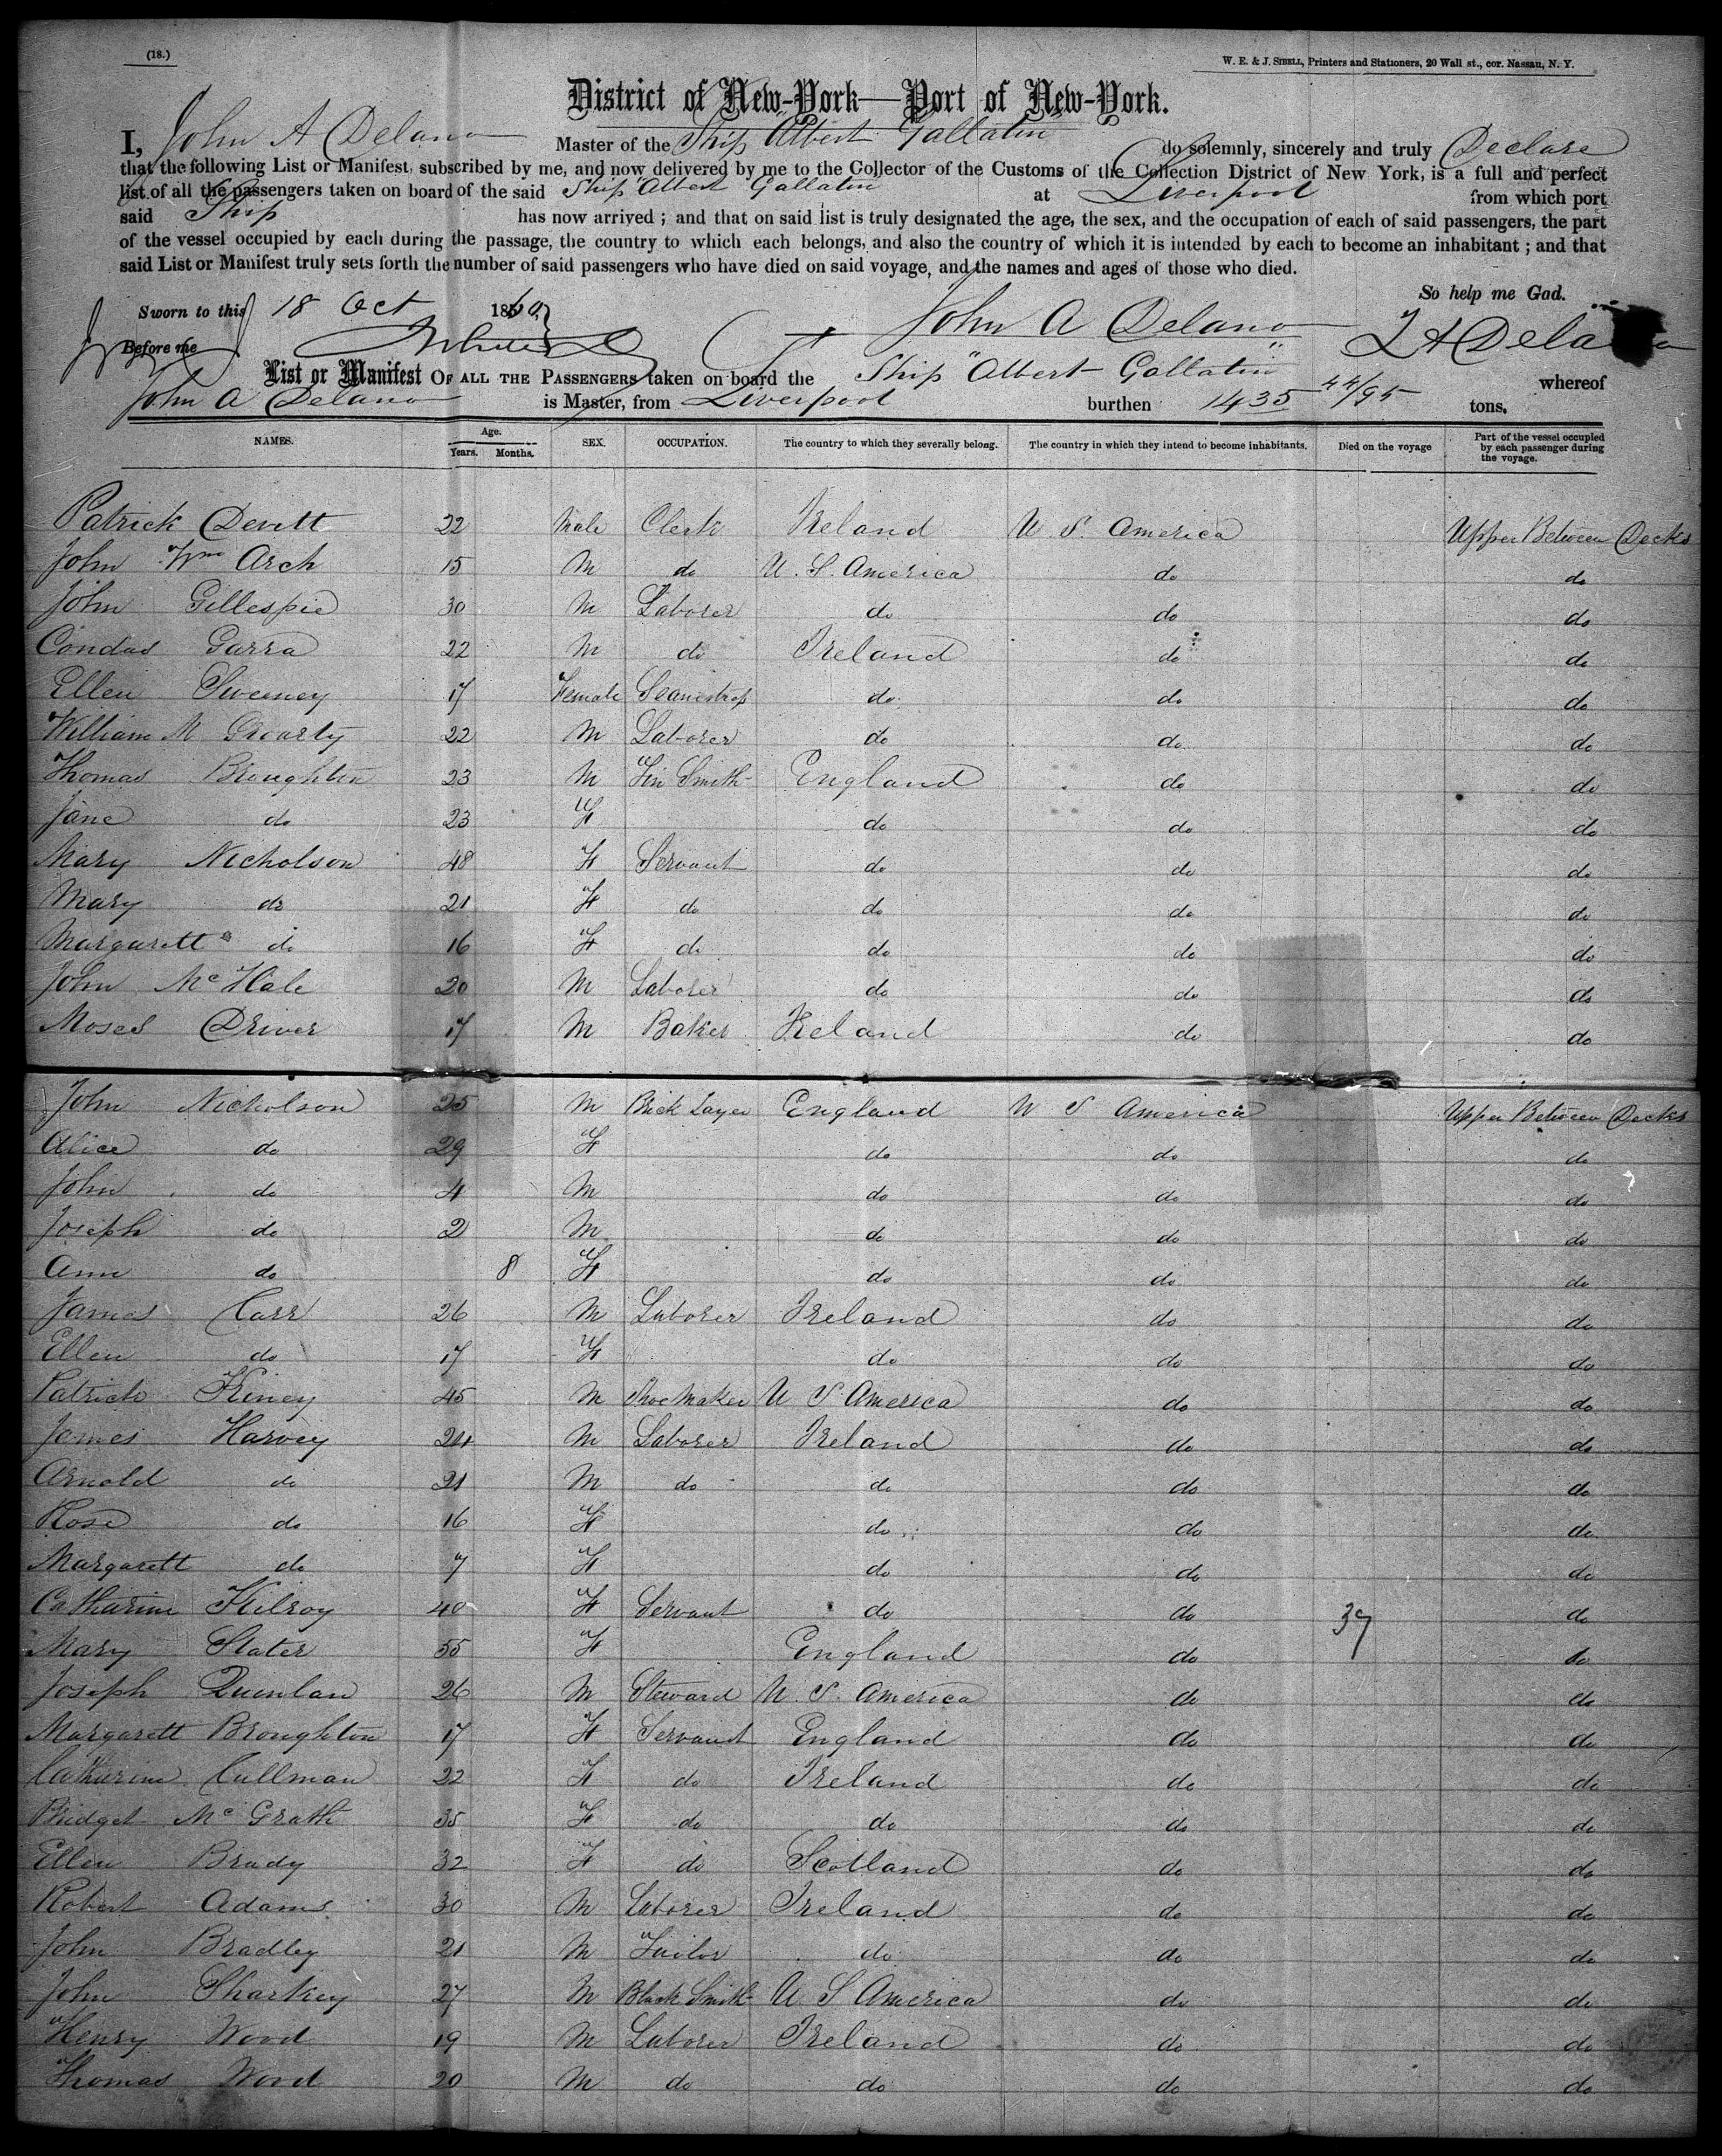 (18.)
W. E. & J. SIBELL, Printers and Stationers, 20 Wall st., cor. Nassau, N. Y.
District of New-York—Port of New-York.
I, John A Delano Master of the Ship Albert Gallatin do solemnly, sincerely and truly Declare
that the following List or Manifest, subscribed by me, and now delivered by me to the Collector of the Customs of the Collection District of New York, is a full and perfect
list of all the passengers taken on board of the said Ship Albert Gallatin at Liverpool from which port
said Ship has now arrived ; and that on said list is truly designated the age, the sex, and the occupation of each of said passengers, the part
of the vessel occupied by each during the passage, the country to which each belongs, and also the country of which it is intended by each to become an inhabitant ; and that
said List or Manifest truly sets forth the number of said passengers who have died on said voyage, and the names and ages of those who died.
So help me God.
Sworn to this 18 Oct 1860 John A Delano
Before me
List or Manifest OF ALL THE PASSENGERS taken on board the Ship "Albert Gallatin" whereof
John A Delano is Master, from Liverpool burthen 1435 44/95 tons.
NAMES. Age. Years. Months. SEX. OCCUPATION. The country to which they severally belong. The country in which they intend to become inhabitants. Died on the voyage Part of the vessel occupied by each passenger during the voyage.
Patrick Devitt 22 Male Clerk Ireland U S. America Upper Between Decks
John Wm Arch 15 M do U. S. America do do
John Gillespie 30 M Laborer do do do
Condas Garra 22 M do Ireland do do
Ellen Sweeney 17 Female Seamstress do do do
William M Groarty 22 M Laborer do do do
Thomas Broughton 23 M Tin Smith England do do
Jane do 23 F do do do
Mary Nicholson 48 F Servant do do do
Mary do 21 F do do do do
Margarett do 16 F do do do do
John McHale 20 M Laborer do do do
Moses Driver 17 M Baker Ireland do do
John Nicholson 25 M Brick Layer England U S America Upper Between Decks
Alice do 29 F do do do
John do 4 M do do do
Joseph do 2 M do do do
Ann do 8 F do do do
James Carr 26 M Laborer Ireland do do
Ellen do 17 F do do do
Patrick Kiney 45 M Shoe Maker U S America do do
James Harvey 24 M Laborer Ireland do do
Arnold do 21 M do do do do
Rose do 16 F do do do
Margarett do 7 F do do do
Catharine Kilroy 40 F Servant do do 39 do
Mary Slater 55 F England do do
Joseph Quinlan 26 M Steward U. S. America do do
Margarett Broughton 17 F Servant England do do
Catharine Cullman 22 F do Ireland do do
Bridget McGrath 35 F do do do do
Ellen Brady 32 F do Scotland do do
Robert Adams 30 M Laborer Ireland do do
John Bradley 21 M Tailor do do do
John Sharkey 27 M Black Smith U. S America do do
Henry Wood 19 M Laborer Ireland do do
Thomas Wood 20 M do do do do